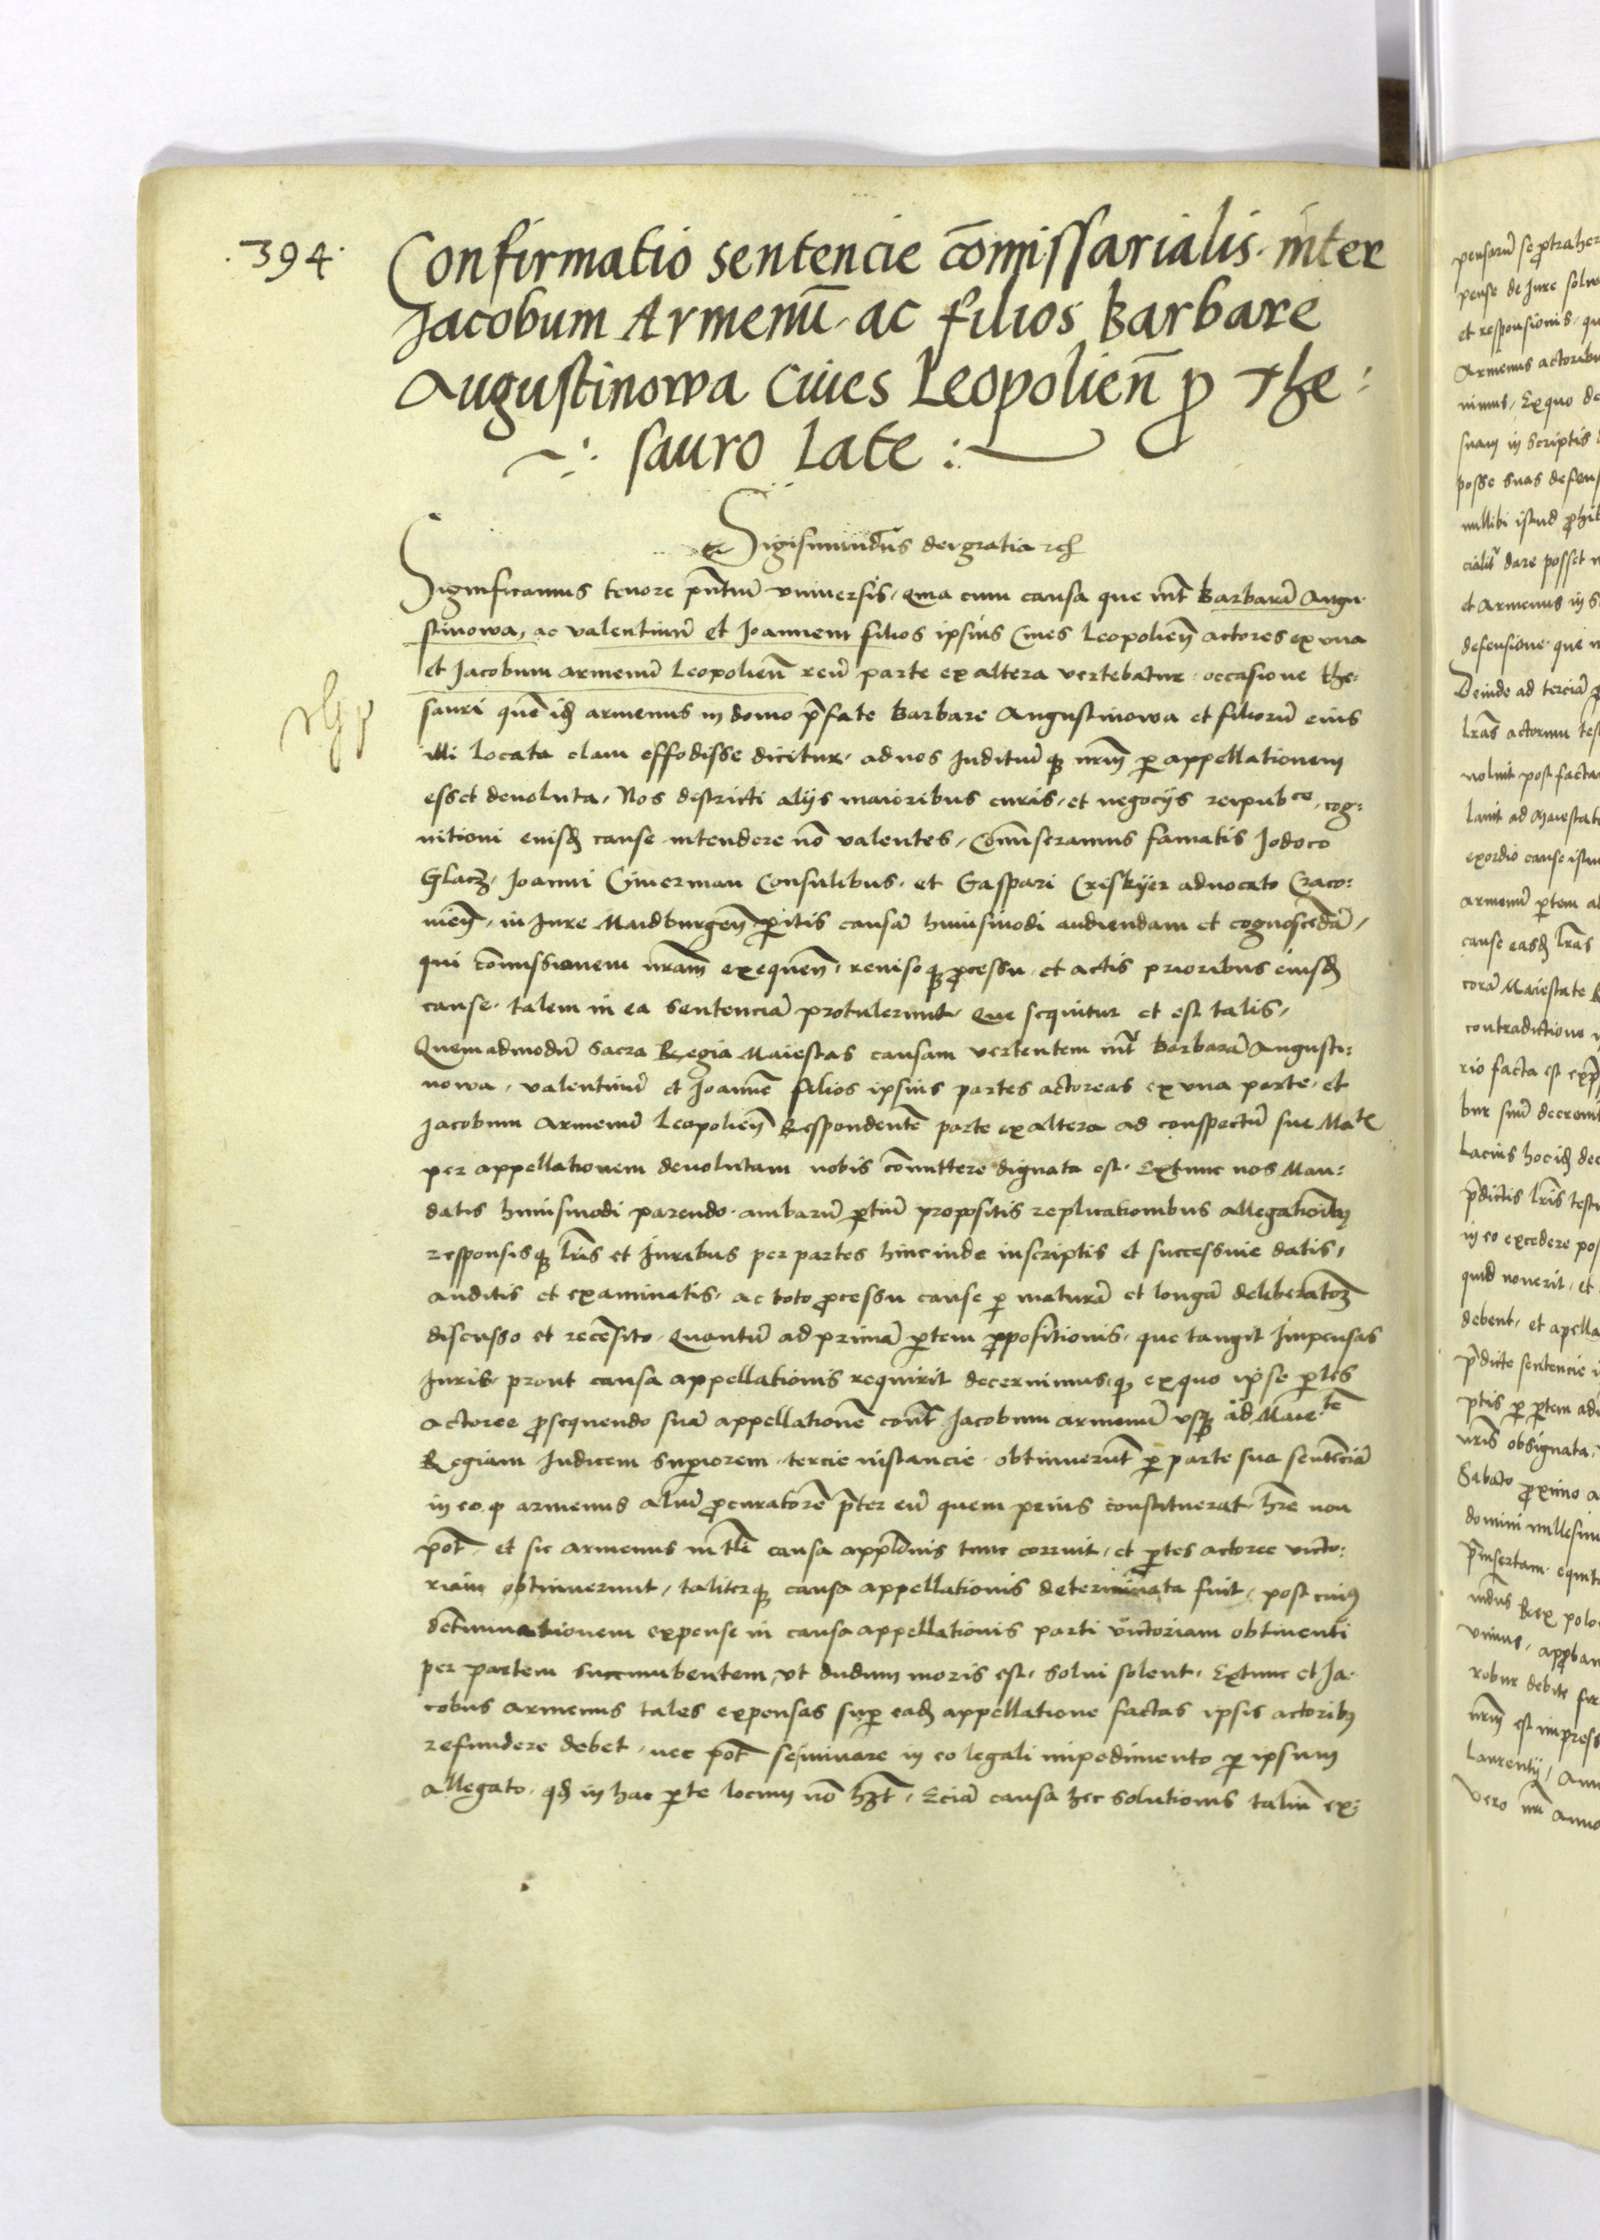 .394.
Confirmatio sentencie cōmissarialis inter
Jacobum Armenū ac filios Barbare
Augustinowa Cives Leopolieñ ꝓ The:
sauro Late
Sigismundus dei gratia
Significamus tenore pñtiū universis, Quia cum causa que int Barbarā Augu
stinowa, ac Valentinū et Joannem filios ipsius Cives Leopolieñ actores ex una
et Jacobum armenū Leopolieñ reū parte ex altera vertebatur occasione the:
sauri quē idē armenus in domo p̄fate Barbare Augustinowa et filiorū eius
illi locata clam effodisse dicitur, ad nos Juditiūqȝ nrm̄ ꝑ appellationem
esset devoluta, Nos districti alijs maioribus curis, et negocijs reipubce, cog:
nitioni eiusd̄ cause intendere nō valentes, Cōmiseramus famatis Jodoco
Glacz, Joanni Cimerman Consulibus, et Gaspari Creskijer advocato Craco:
vieñ, in Jure Maidburgeñ ꝑitis causā huiusmodi audiendam et cognoscēdā,
qui cōmissionem nrām exequeñ, reviso qȝ ꝓcessu et actis prioribus eiusd̄
cause, talem in ea sentenciā protulerunt, Que sequitur et est talis,
Quemadmodū Sacra Regia Maiestas causam vertentem int Barbarā Augusti:
nowa, Valentinū et Joannē filios ipsius partes actoreas ex una parte, et
Jacobum Armenū Leopolieñ Respondentē parte ex altera ad conspectū sue Mates
per appellationem devolutam nobis cōmittere dignata est, Extunc nos Man:
datis huiusmodi parendo, ambarū ꝑtiū propositis replicationibus allegationibȝ
responsisqȝ lr̄is et Juribus per partes hincinde in scriptis et successive datis,
auditis et examinatis, ac toto ꝓcessu cause ꝑ maturā et longā deliberatoēȝ
discusso et recēsito, Quantū ad primā ꝑtem ꝓpositionis, que tangit Impensas
Juris, prout causa appellationis requirit decernimus, qȝ ex quo ipse ꝑtes
actoree ꝓsequendo suā appellationē cont Jacobum armenū usqȝ ad Maiestē
Regiam Judicem supiorem tercie instancie obtinuerunt ꝑ parte sua sentēciā
in eo, q armenus aliū ꝓcuratorē p̄ter eū quem prius constituerat, hr̄e non
pōt, et sic armenus in tli causa applōnis tunc corruit, et ꝑtes actoree victo:
riam obtinuerunt, taliterqȝ causa appellationis determinata fuit, post cuiȝ
detminationem expense in causa appellationis parti victoriam obtinenti
per partem succumbentem, ut dudum moris est, solui solent, Extunc et Ja:
cobus armenus tales expensas sup ead̄ appellatione factas ipsis actoribȝ
refundere debet, nec pōt se iuvare in eo legali impedimento ꝑ ipsum
allegato, qd̄ in hac ꝑte locum nō hȝt, Eciā causa hec solutionis taliū ex: